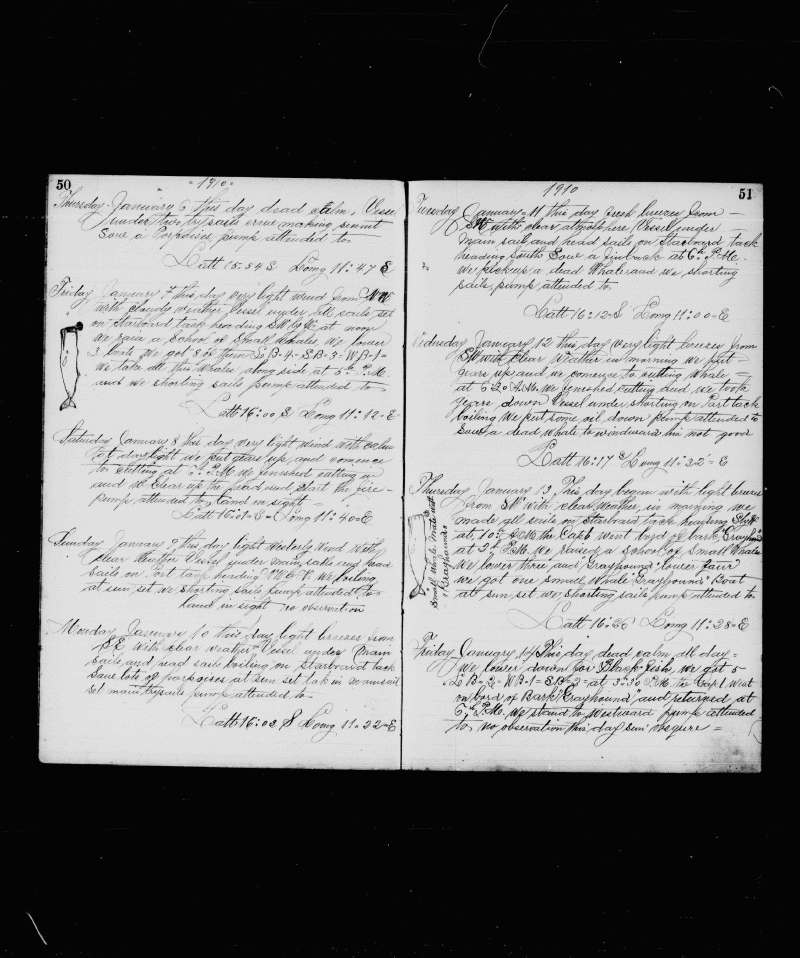 50
1910
Thursday January 6 this day dead calm. Vessel
under two trysails crew making sennit
Saw a Porpoises pump attended to
Latt 15.54 S Long 11:47 E
Friday January 7 this day very light wind from NW
with cloudy weather Vessel under all sails set
on Starboard tack heading SW by W at noon
we saw a School of Small Whales. We lower
3 boats We got 8 of them LB-4- SB-3- WB-1-
We take all this Whales along side at 5 P.M
and we shorting sails pump attended to
Latt 16:00 S Long 11:12-E
Saturday January 8 this day very light wind with calm
at daylight we put gears up and commence
to cutting at P.M we finished cutting in
and we clear up the head and start the fire-
pump attended to land in sight-
Latt 16:01-S-Long 11:40=E
Sunday January 9 this day light Westerly Wind with
clear weather Vessel under main sails and head
sails on Port tack heading we boiling
at sun set we shorting sails pump attended to-
land in sight no observation
Monday January 10 this day light breezes from
SE with clear weather Vessel under Main
sails and head sails boiling on Starboard tack
Saw lots of porpoises at sun set tak in mainsail
set main trysails pump attended to-
Latt 16:03 S Long 11:22=E
51
1910
Tuesday January 11 this day fresh breezes from-
SW with clear atmosphere Vessel under
main sail and head sails on Starboard tack
heading South Saw a finback at 6h P.M.
we pickup a dead Whale and we shorting
sails pump attended to
Latt 16:12-S Long 11:00=E
Wednesday January 12 this day very light breezes from
SW with clear Weather in morning we put=
gears up and we comence to cutting whale=
at 6:20 A.M. we fenished cutting and we took
gears down Vessel under shorting on Port tack
boiling We put some oil down pump attended to
Saw a dead whale to windward him not good
Latt 16:17 S Long 11:32 = E
Thursday January 13 This day began with light breezes
from SW with clear weather, in morning we
made all sails on Starboard tack heading
at 10h A.M. the Capt went bord of bark "Grayhound"
at 2h P.M. We raised a School of Small Whales
We lower three and "Grayhound" lower four
we got one small Whale "Grayhound" Boat
at sun set we shorting sails pump attended to
Small Whale mate with
"Grayhounds"
Latt 16:26 Long 11:28=E
Friday January 14 This day dead calm all day=
We lower down for Black Fish, we got 5-
LB-2- WB-1= SB-2- at 3:30 P.M. the Capt went
on bord of Bark "Grayhound" and returned at
6h P.M. we stand to Westward pump attended
to no observation this day sun obsqure=